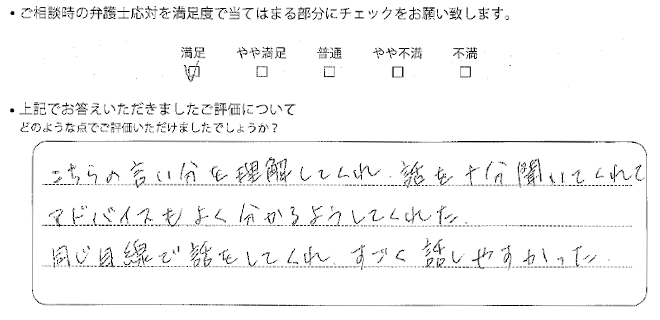 • ご相談時の弁護士応対を満足度で当てはまる部分にチェックをお願い致します。
満足 やや満足 普通 やや不満 不満
☑ □ □ □ □
• 上記でお答えいただきましたご評価について
どのような点でご評価いただけましたでしょうか？
こちらの言い分を理解してくれ、話を十分聞いてくれて
アドバイスもよく分かるようしてくれた。
同じ目線で話をしてくれ、すごく話しやすかった。